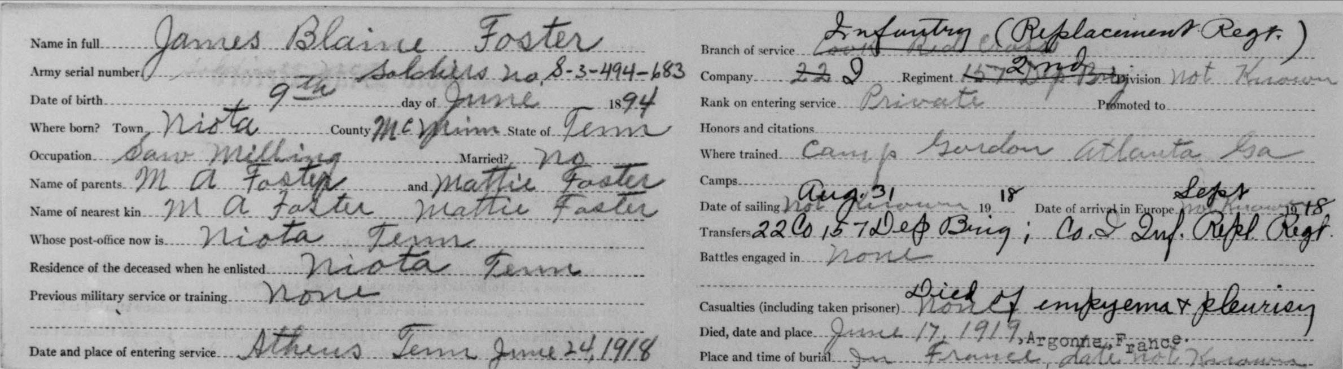 Name in full James Blaine Foster
Army serial number Soldiers no, 8-3-494-683
Date of birth 9th day of June 1894
Where born? Town Niota County McMinn State of Tenn
Occupation Saw Milling Married? no
Name of parents M A Foster and Mattie Foster
Name of nearest kin M A Foster Mattie Foster
Whose post-office now is Niota Tenn
Residence of the deceased when he enlisted Niota Tenn
Previous military service or training none
Date and place of entering service Athens Tenn June 24, 1918
Infantry (Replacement Regt.)
Branch of service
Company 22 I Regiment 157 Dep Brig 2nd Division not Known
Rank on entering service Private Promoted to
Honors and citations
Where trained Camp Gordon Atlanta Ga
Camps
Date of sailing not Known Aug. 31 1918 Date of arrival in Europe not Known Sept 1918
Transfers 22 Co, 157 Dep Brig; Co. I Inf. Repl. Regt.
Battles engaged in none
Casualties (including taken prisoner) none Died of empyema & pleurisy
Died, date and place June 17, 1919, Argonne, France.
Place and time of burial In France, date not Known